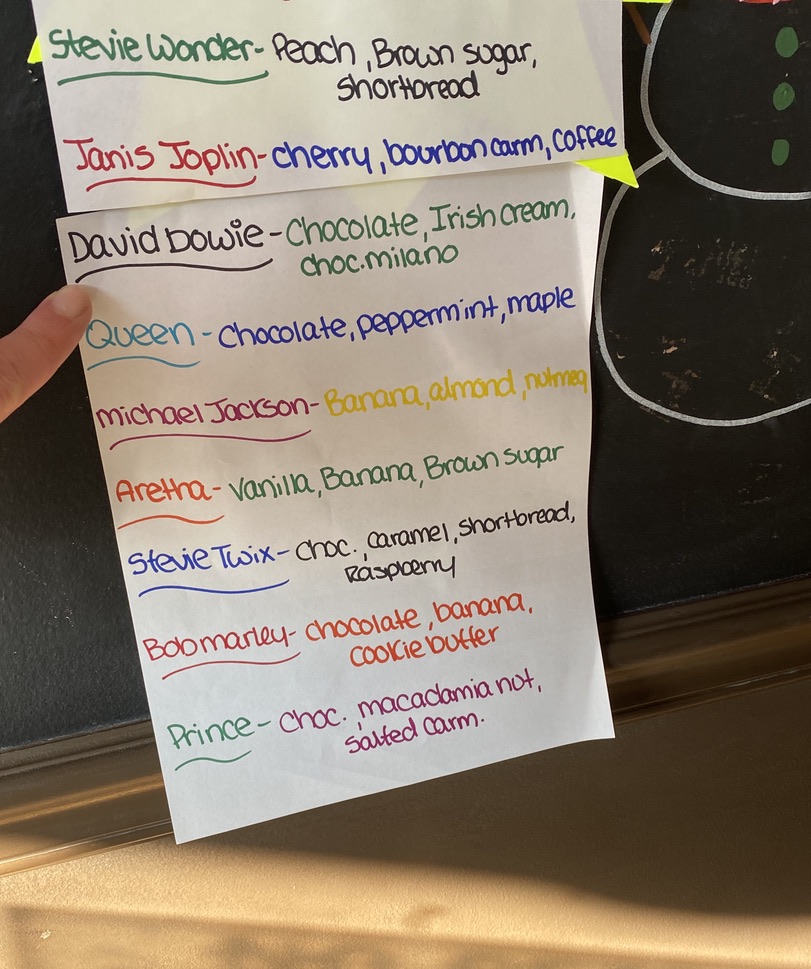 Stevie Wonder- Peach, Brown sugar,
shortbread
Janis Joplin- cherry, bourbon carm, coffee
David bowie - Chocolate, Irish cream,
choc. milano
Queen - chocolate, peppermint, maple
michael Jackson- Banana, almond, nutmeg
Aretha- Vanilla, Banana, Brown sugar
Stevie Twix- choc., caramel, shortbread,
Raspberry
Bob marley- chocolate, banana,
cookie butter
Prince- choc. macadamia nut,
salted carm.